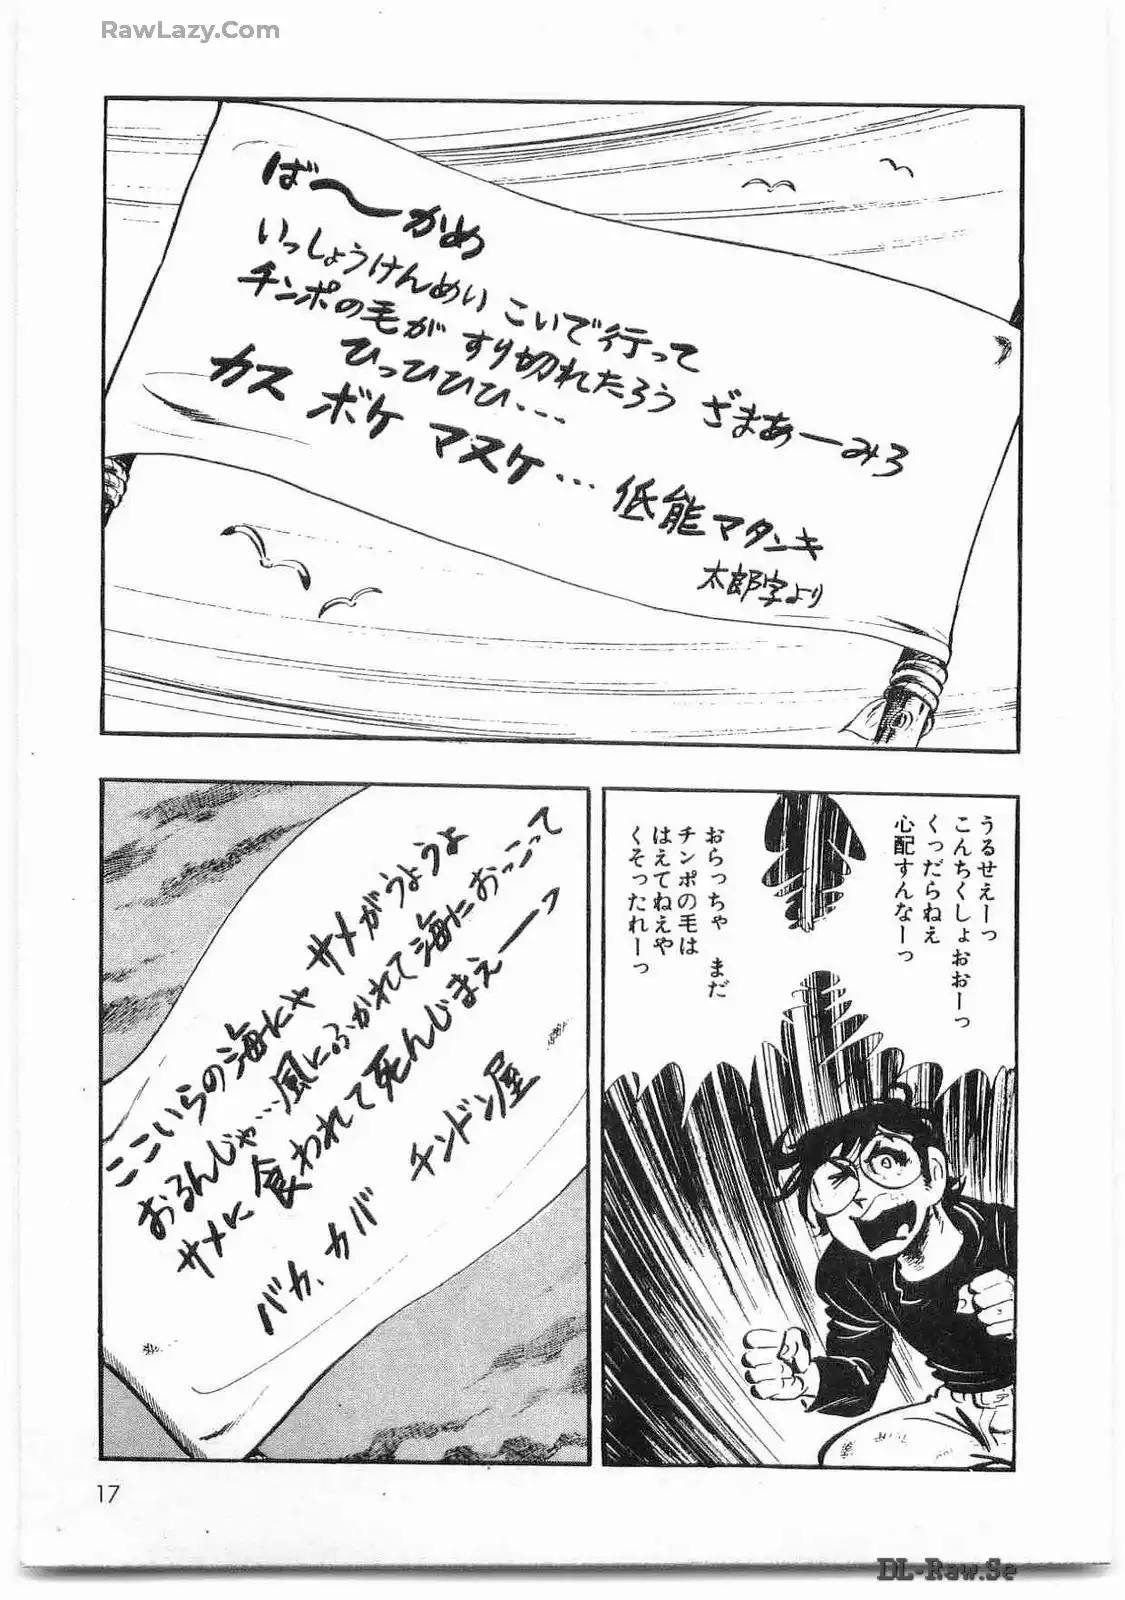 RawLazy.Com
ば～かめ
いっしょうけんめい こいで行って
チンポの毛が すり切れたろう ざまあーみろ
ひっひひひ...
カス ボケ マヌケ... 低能マタンキ
太郎字より
うるせえーっ
こんちくしょおおーっ
くっだらねえ
心配すんなーっ
おらっちゃ まだ
チンポの毛は
はえてねえや
くそったれーっ
ここいらの海にゃ サメがうようよ
おるんじゃ...風にふかれて海におっこって
サメに 食われて死んじまえーーッ
バカ、カバ チンドン屋
17
DL-Raw.Se